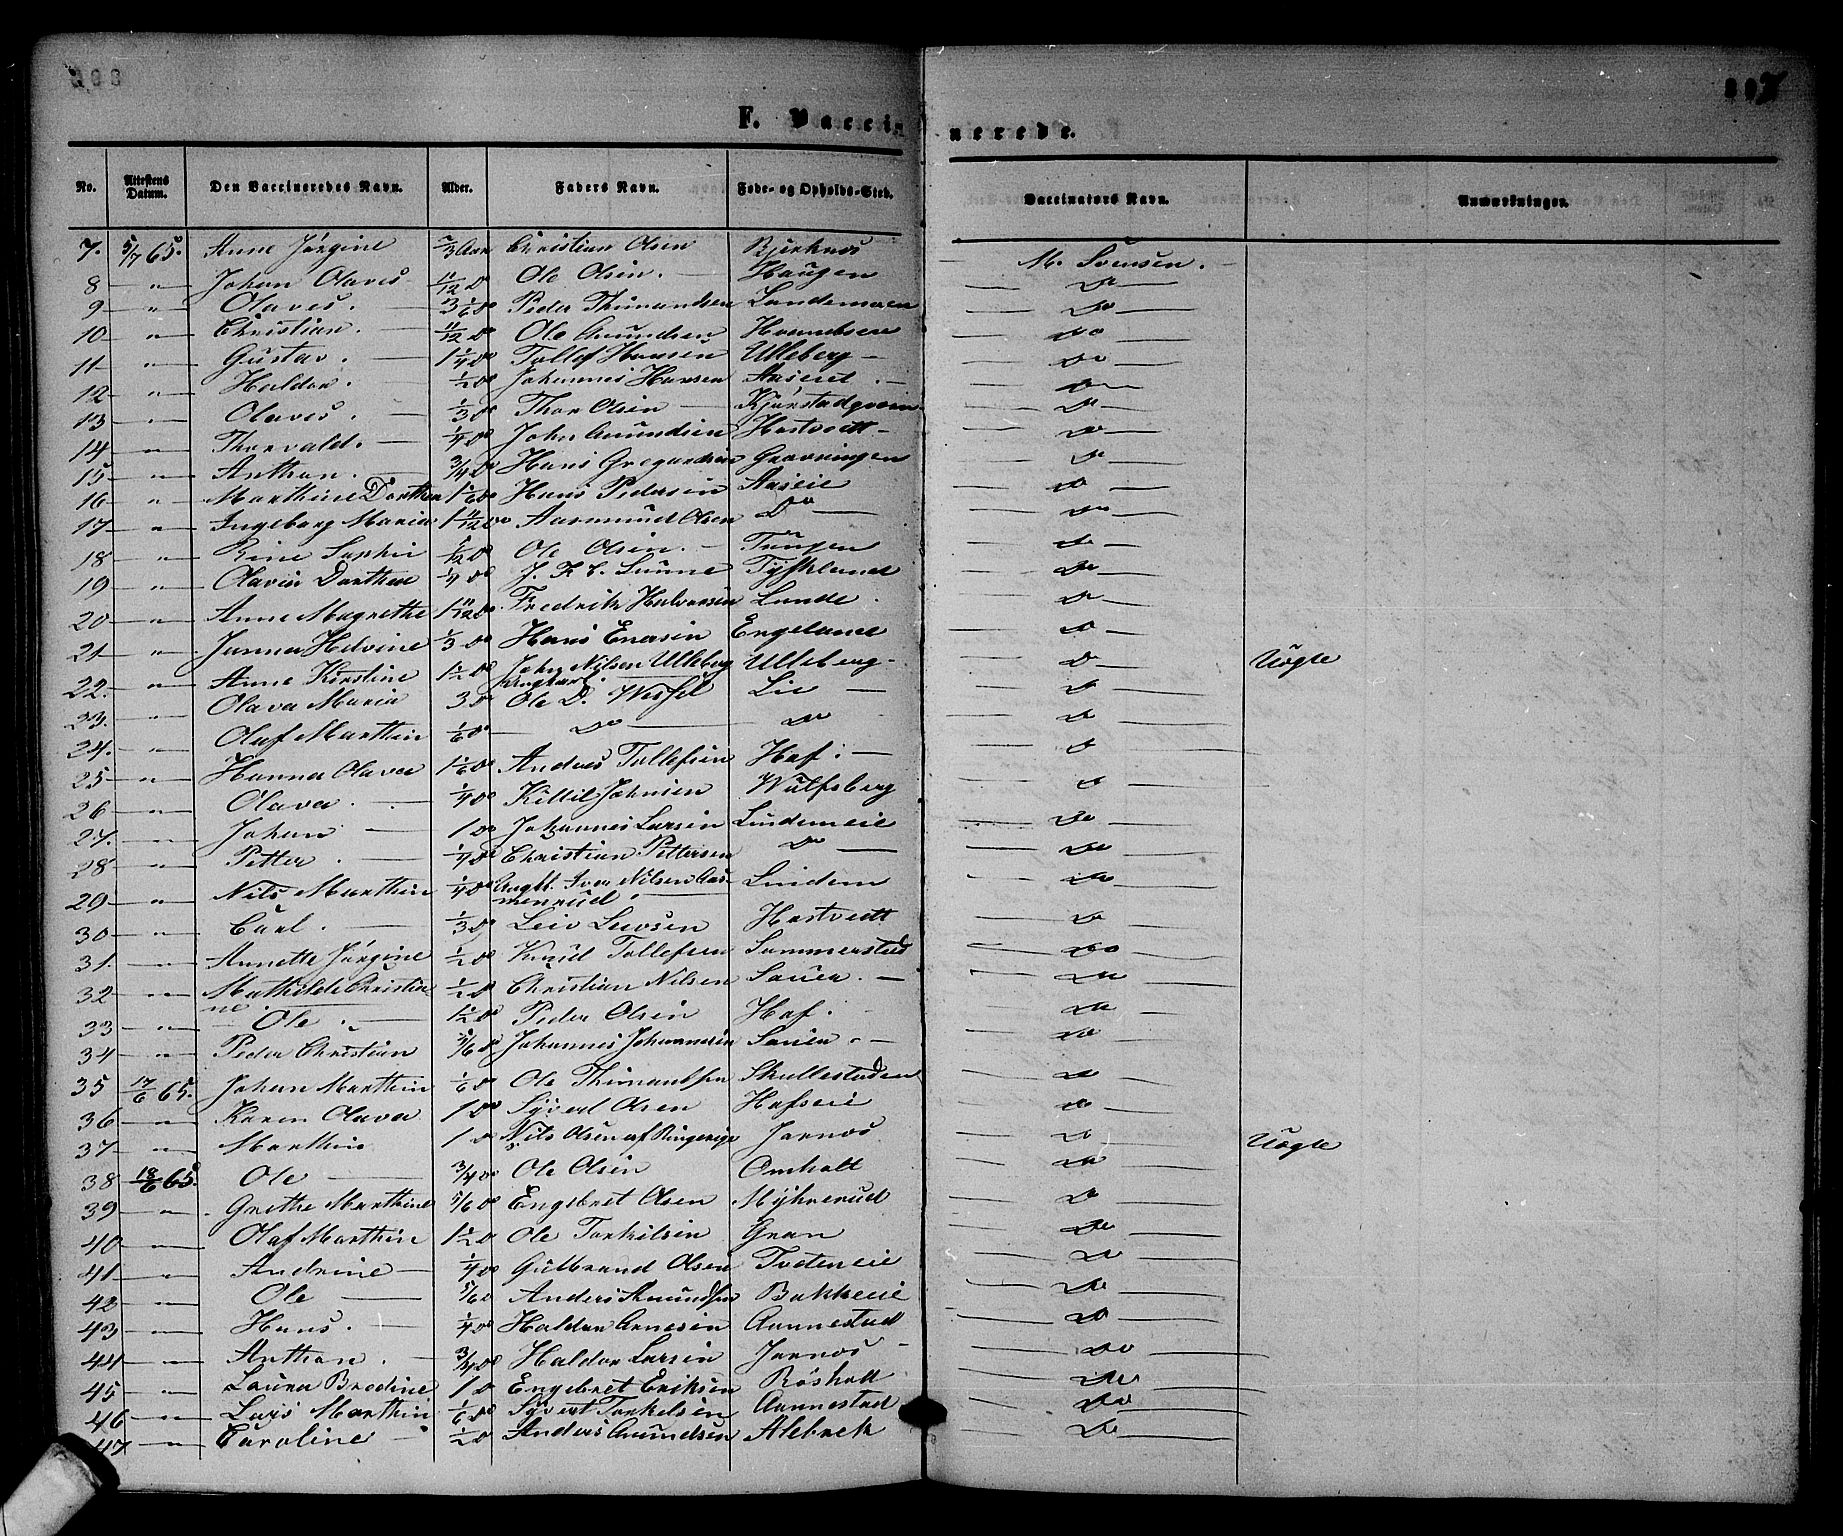 F. Vaccinerede.
No. Attestens Datum. Den Vaccineredes Navn. Alder. Faders Navn. Føde- og Opholds-Sted. Vaccinators Navn. Anmærkninger.
7. 5/7 65. Anne Jørgine 2/3 Aar Christian Olsen Bjerknes M. Svensen.
8 " Johan Olaves 11/12 Do Ole Olsen. Haugen Do
9 " Olaves. 3 1/6 Do Peder Thimandsen Lundemoen Do
10 " Christian. 11/12 Do Ole Amundsen Do
11 " Gustav. 1 1/4 Do Tollef Hansen Ulleberg Do
12 " Haldor. 1/2 Do Johannes Hansen Aaseret. Do
13 " Olaves. 1/3 Do Thor Olsen Do
14 " Thorvald. 1/4 Do John Amundsen Hostvedt Do
15 " Anthon. 3/4 Do Hans Gregersen Gravningen Do
16 " Marthine Dorthea 1 1/6 Do Hans Pedersen Aaseie Do
17 " Ingeborg Maria 1 11/12 Do Aasmund Olsen Do Do
18 " Rine Sophie Do Ole Olsen. Do
19 " Olavia Dorthea 1/4 Do Tyskland Do
20 " Anne Magrethe 1 11/12 Do Fredrik Halvorsen Lunde. Do
21 " Janna Helvine 1/3 Do Hans Enersen Engelund Do
22. " Anne Kirstine 1 1/2 Do John Nilsen Ulleberg Ulleberg Do Uægte
23. " Olava Maria 3 Do Ole D. Wessel Lie Do
24. " Olaf Marthin 1/6 Do Do Do Do
25 " Hanna Olava 1 1/6 Do Anders Tollefsen Hof. Do
26 " Olava. 1/4 Do Kittil Johnsen Wulfsberg Do
27. " Johan 1 Do Johannes Larsen Lindemeie Do
28 " Petter. 1/4 Do Christian Pettersen Do Do
29 " Nils Marthin 1/4 Do Angtl. Iver Nilsen Aas- Lindem Do
menrud.
30 " Carl. 1/3 Do Leiv Hostvedt Do
31. " Annette Jørgine 1/2 Do Knud Tollefsen Sommerstad Do
32 " Mathilde Christia- 1/2 Do Christian Nilsen Sauer. Do
ne
33 " Ole. 1 1/2 Do Peder Olsen Hof. Do
34 " Peder Christian 5/6 Do Johannes Johannesen Sauer. Do
35 17/6 65. Johan Marthin 1/6 Do Ole Thimandsen Skullestaden Do
36 " Karen Olava 1 Do Syverd Olsen Hofseie Do
37 " Marthin 1 Do Nils Olsen af Ringerige Jarnæs Do Uægte
38 18/6 65. Ole 3/4 Do Ole Olsen Omholt Do
39 " Grethe Marthine 5/6 Do Engebret Olsen Myhrerud Do
40 " Olaf Marthin 1 1/2 Do Ole Torkilsen Gran Do
41 " Andrine 1/4 Do Gulbrand Olsen Tveteneie Do
42 " Ole 5/6 Do Anders Amundsen Bakkeeie Do
43 " Hans. 1/4 Do Haldor Arnesen Aannestad Do
44 " Anthon. 3/4 Do Haldor Larsen Jarnæs Do
45 " Laura Bredine 1 Do Engebret Eriksen Røsholt Do
46 " Lars Marthin 1/6 Do Syvert Torkelsen Aannestad Do
47 " Caroline 1/2 Do Anders Amundsen Alebrek Do